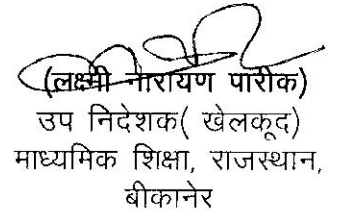 (लक्ष्मी नारायण पारीक)
उप निदेशक( खेलकूद)
माध्यमिक शिक्षा, राजस्थान,
बीकानेर